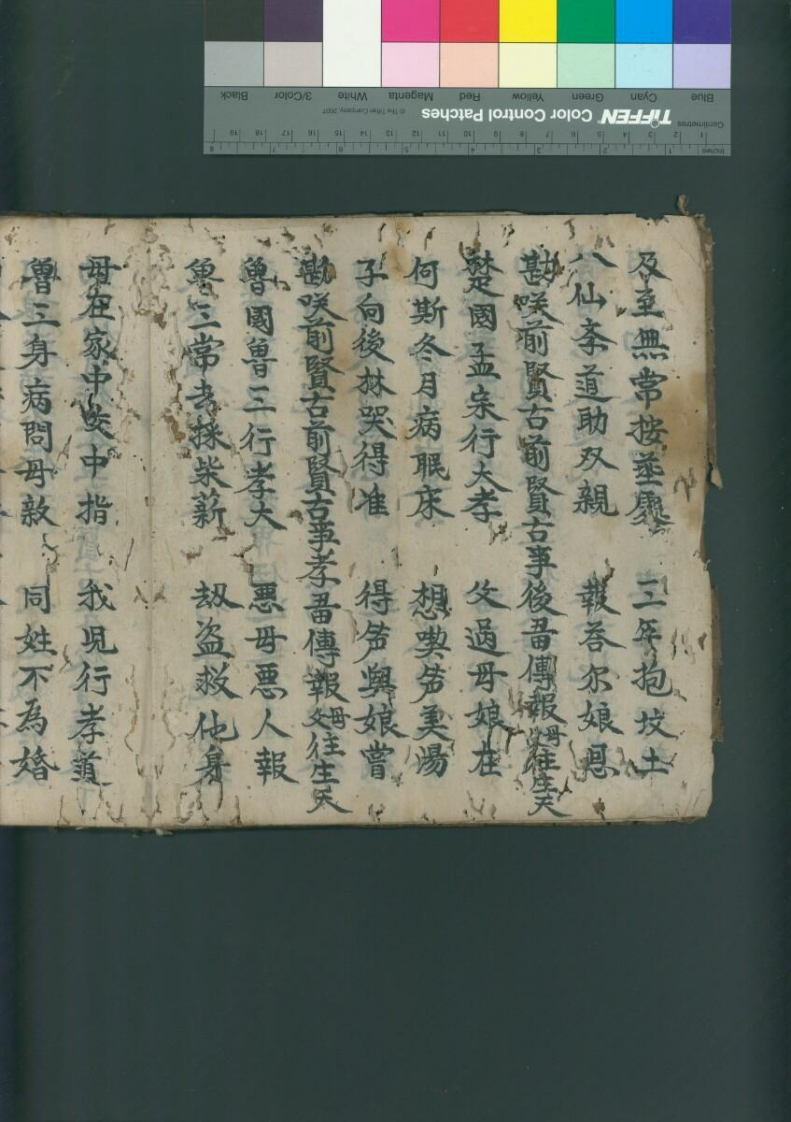 及至無常按䒱 三年抱坟土
八仙夲道助双親 報荅尔娘恩
勘咲前賢古前賢古事後畨傳報父母往生天
楚國孟宗行大孝 父過母娘在
何斯冬月病眠床 想喫笋羙湯
子向後林哭得准 得笋與娘嘗
勘咲前賢古前賢古事孝畨傳報父母往生天
曾國曾三行孝大 惡母惡人報
曾三常去採柴薪 刼盗救他身
母在家中咬中指 我児行孝道
曾三身病問母敎 同姓不為婚
Black
3/Color
White
Magenta
Red
Yellow
Green
Cyan
Blue
TIFFEN Color Control Patches
© The Tiffen Company, 2007
Centimetres
1 2 3 4 5 6 7 8 9 10 11 12 13 14 15 16 17 18 19
Inches
1 2 3 4 5 6 7 8